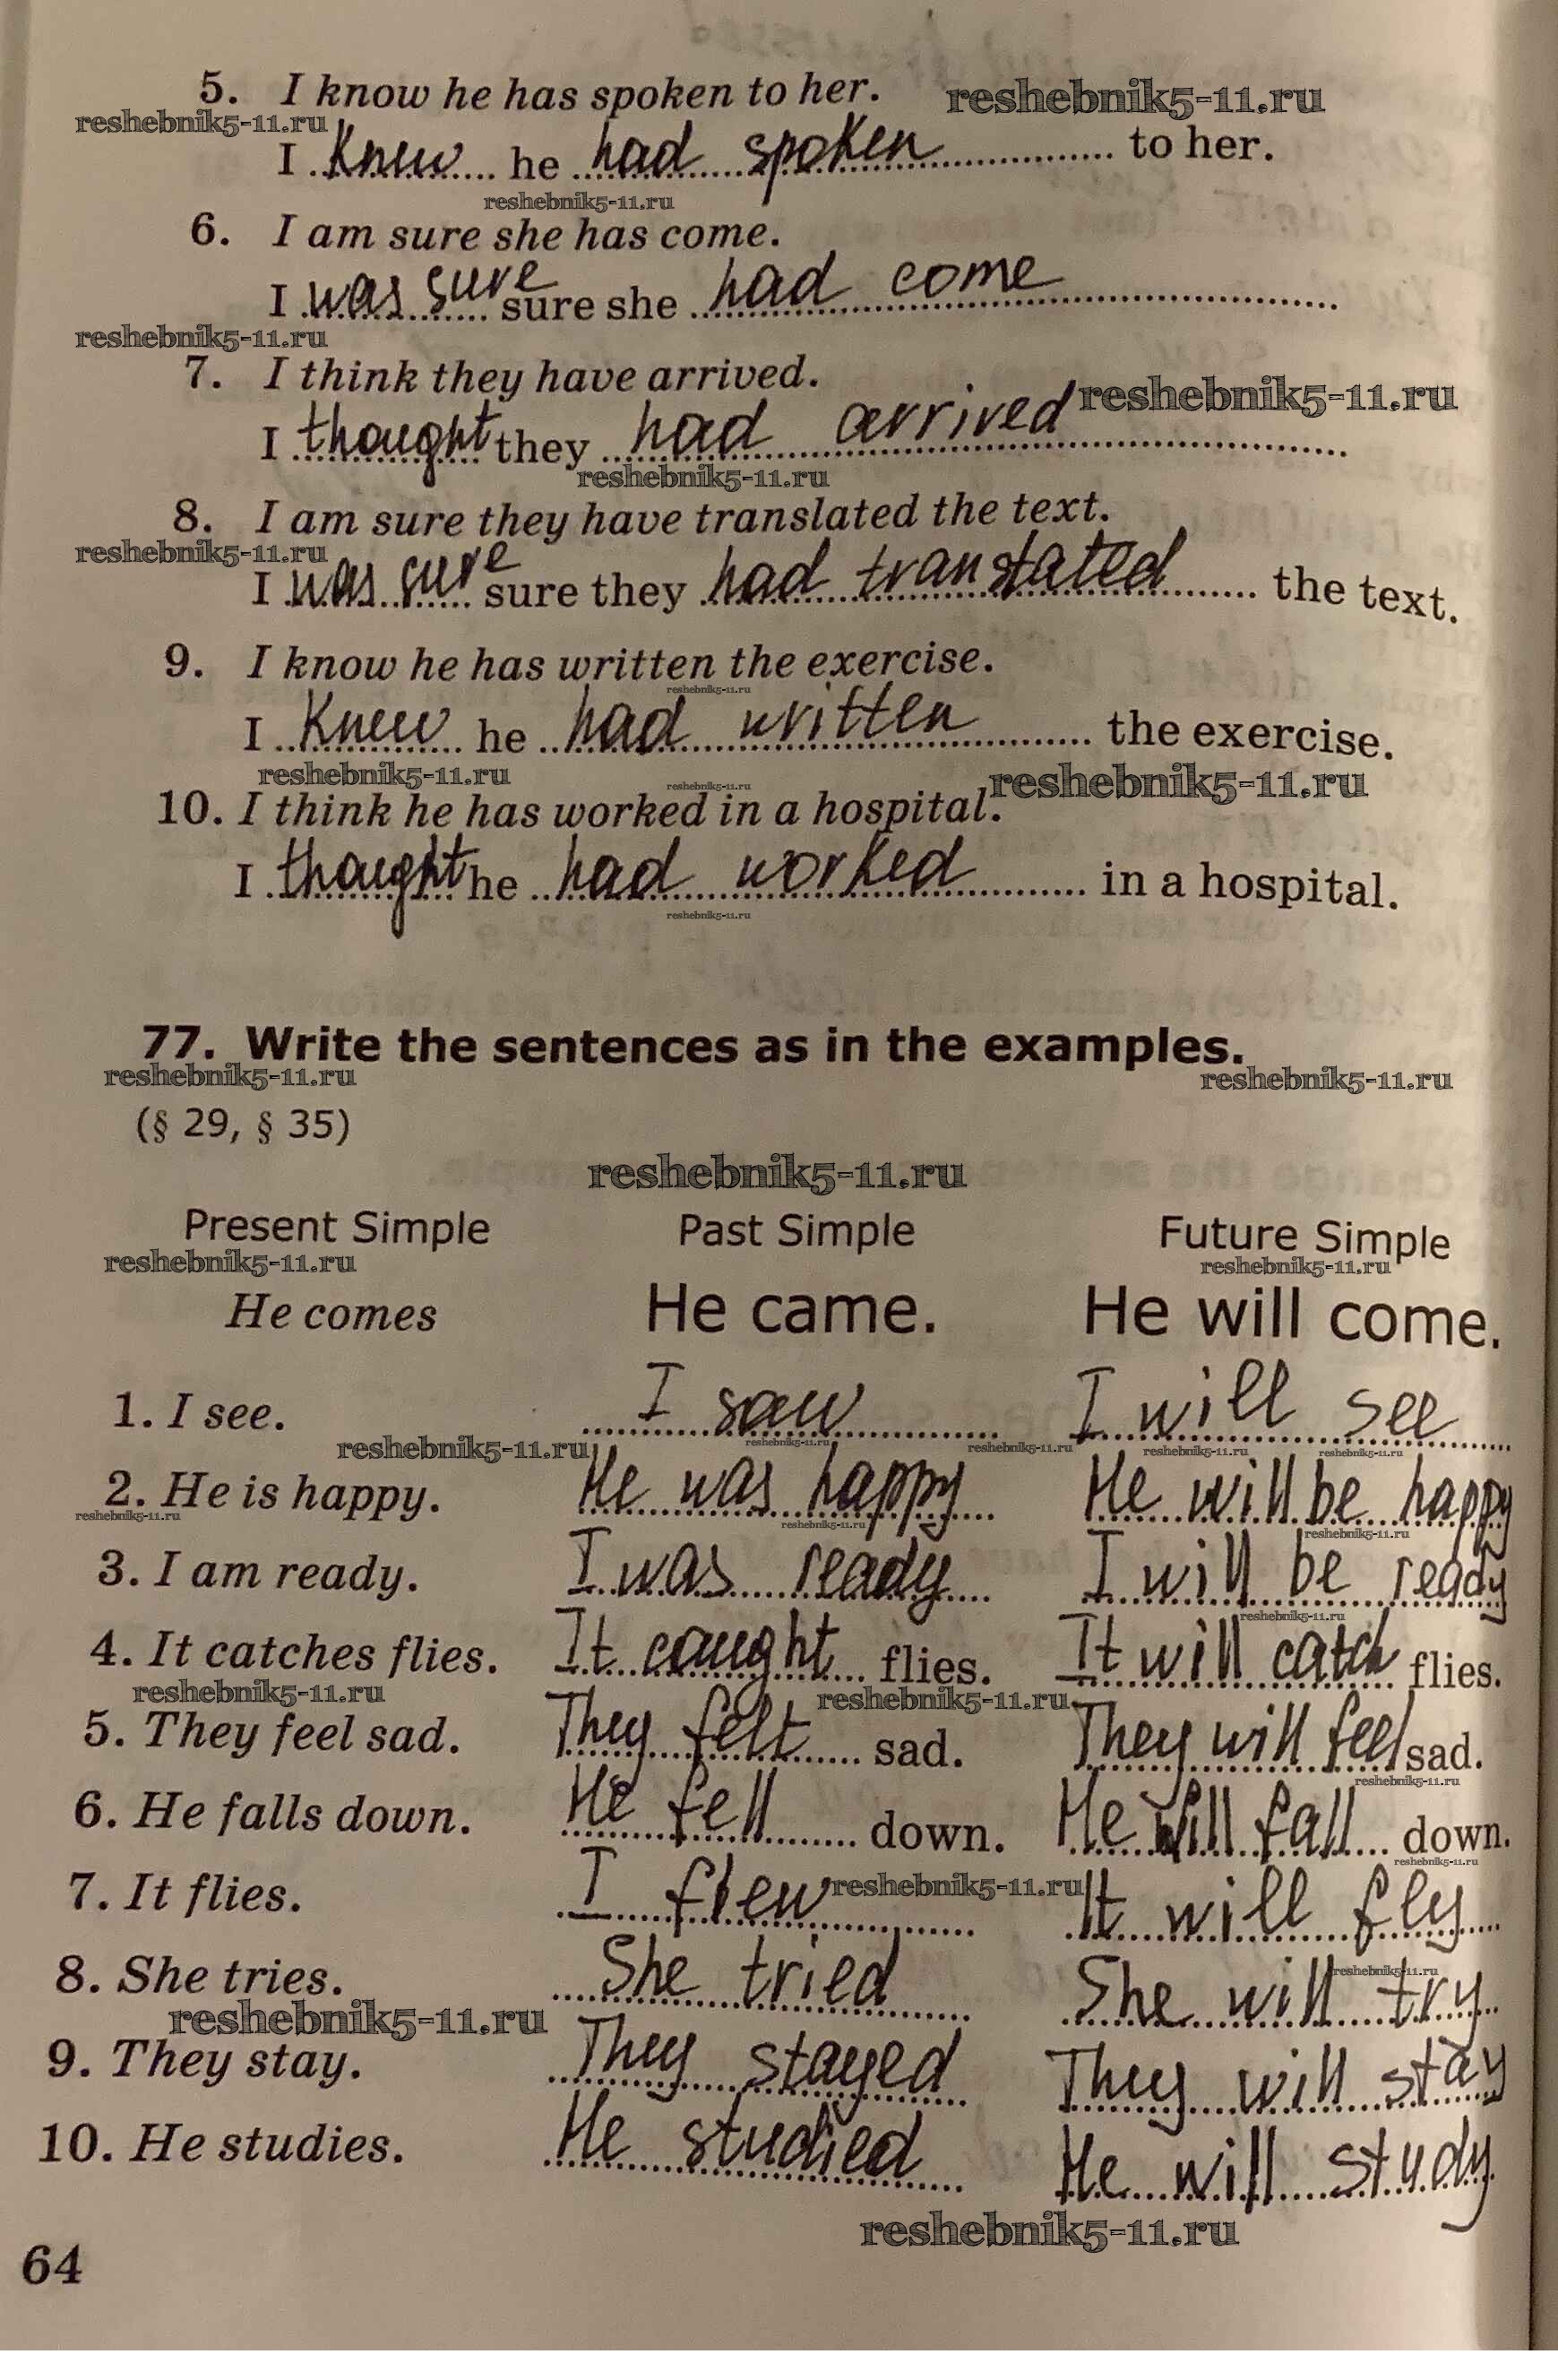 5. I know he has spoken to her. reshebnik5-11.ru
reshebnik5-11.ru
I knew he had spoken to her.
reshebnik5-11.ru
6. I am sure she has come.
I was sure sure she had come
reshebnik5-11.ru
7. I think they have arrived.
reshebnik5-11.ru
I thought they had arrived
reshebnik5-11.ru
8. I am sure they have translated the text.
reshebnik5-11.ru
I was sure sure they had translated the text.
9. I know he has written the exercise.
reshebnik5-11.ru
I knew he had written the exercise.
reshebnik5-11.ru reshebnik5-11.ru reshebnik5-11.ru
10. I think he has worked in a hospital.
I thought he had worked in a hospital.
reshebnik5-11.ru
77. Write the sentences as in the examples.
reshebnik5-11.ru reshebnik5-11.ru
(§ 29, § 35)
reshebnik5-11.ru
Present Simple Past Simple Future Simple
reshebnik5-11.ru reshebnik5-11.ru
He comes He came. He will come.
1. I see. I saw I will see
reshebnik5-11.ru reshebnik5-11.ru reshebnik5-11.ru reshebnik5-11.ru reshebnik5-11.ru
2. He is happy. He was happy He will be happy
reshebnik5-11.ru reshebnik5-11.ru reshebnik5-11.ru
3. I am ready. I was ready I will be ready
reshebnik5-11.ru
4. It catches flies. It caught flies. It will catch flies.
reshebnik5-11.ru reshebnik5-11.ru
5. They feel sad. They felt sad. They will feel sad.
reshebnik5-11.ru
6. He falls down. He fell down. He will fall down.
reshebnik5-11.ru
7. It flies. I flew reshebnik5-11.ru It will fly
8. She tries. She tried She will try
reshebnik5-11.ru
reshebnik5-11.ru
9. They stay. They stayed They will stay
10. He studies. He studied He will study
reshebnik5-11.ru
64